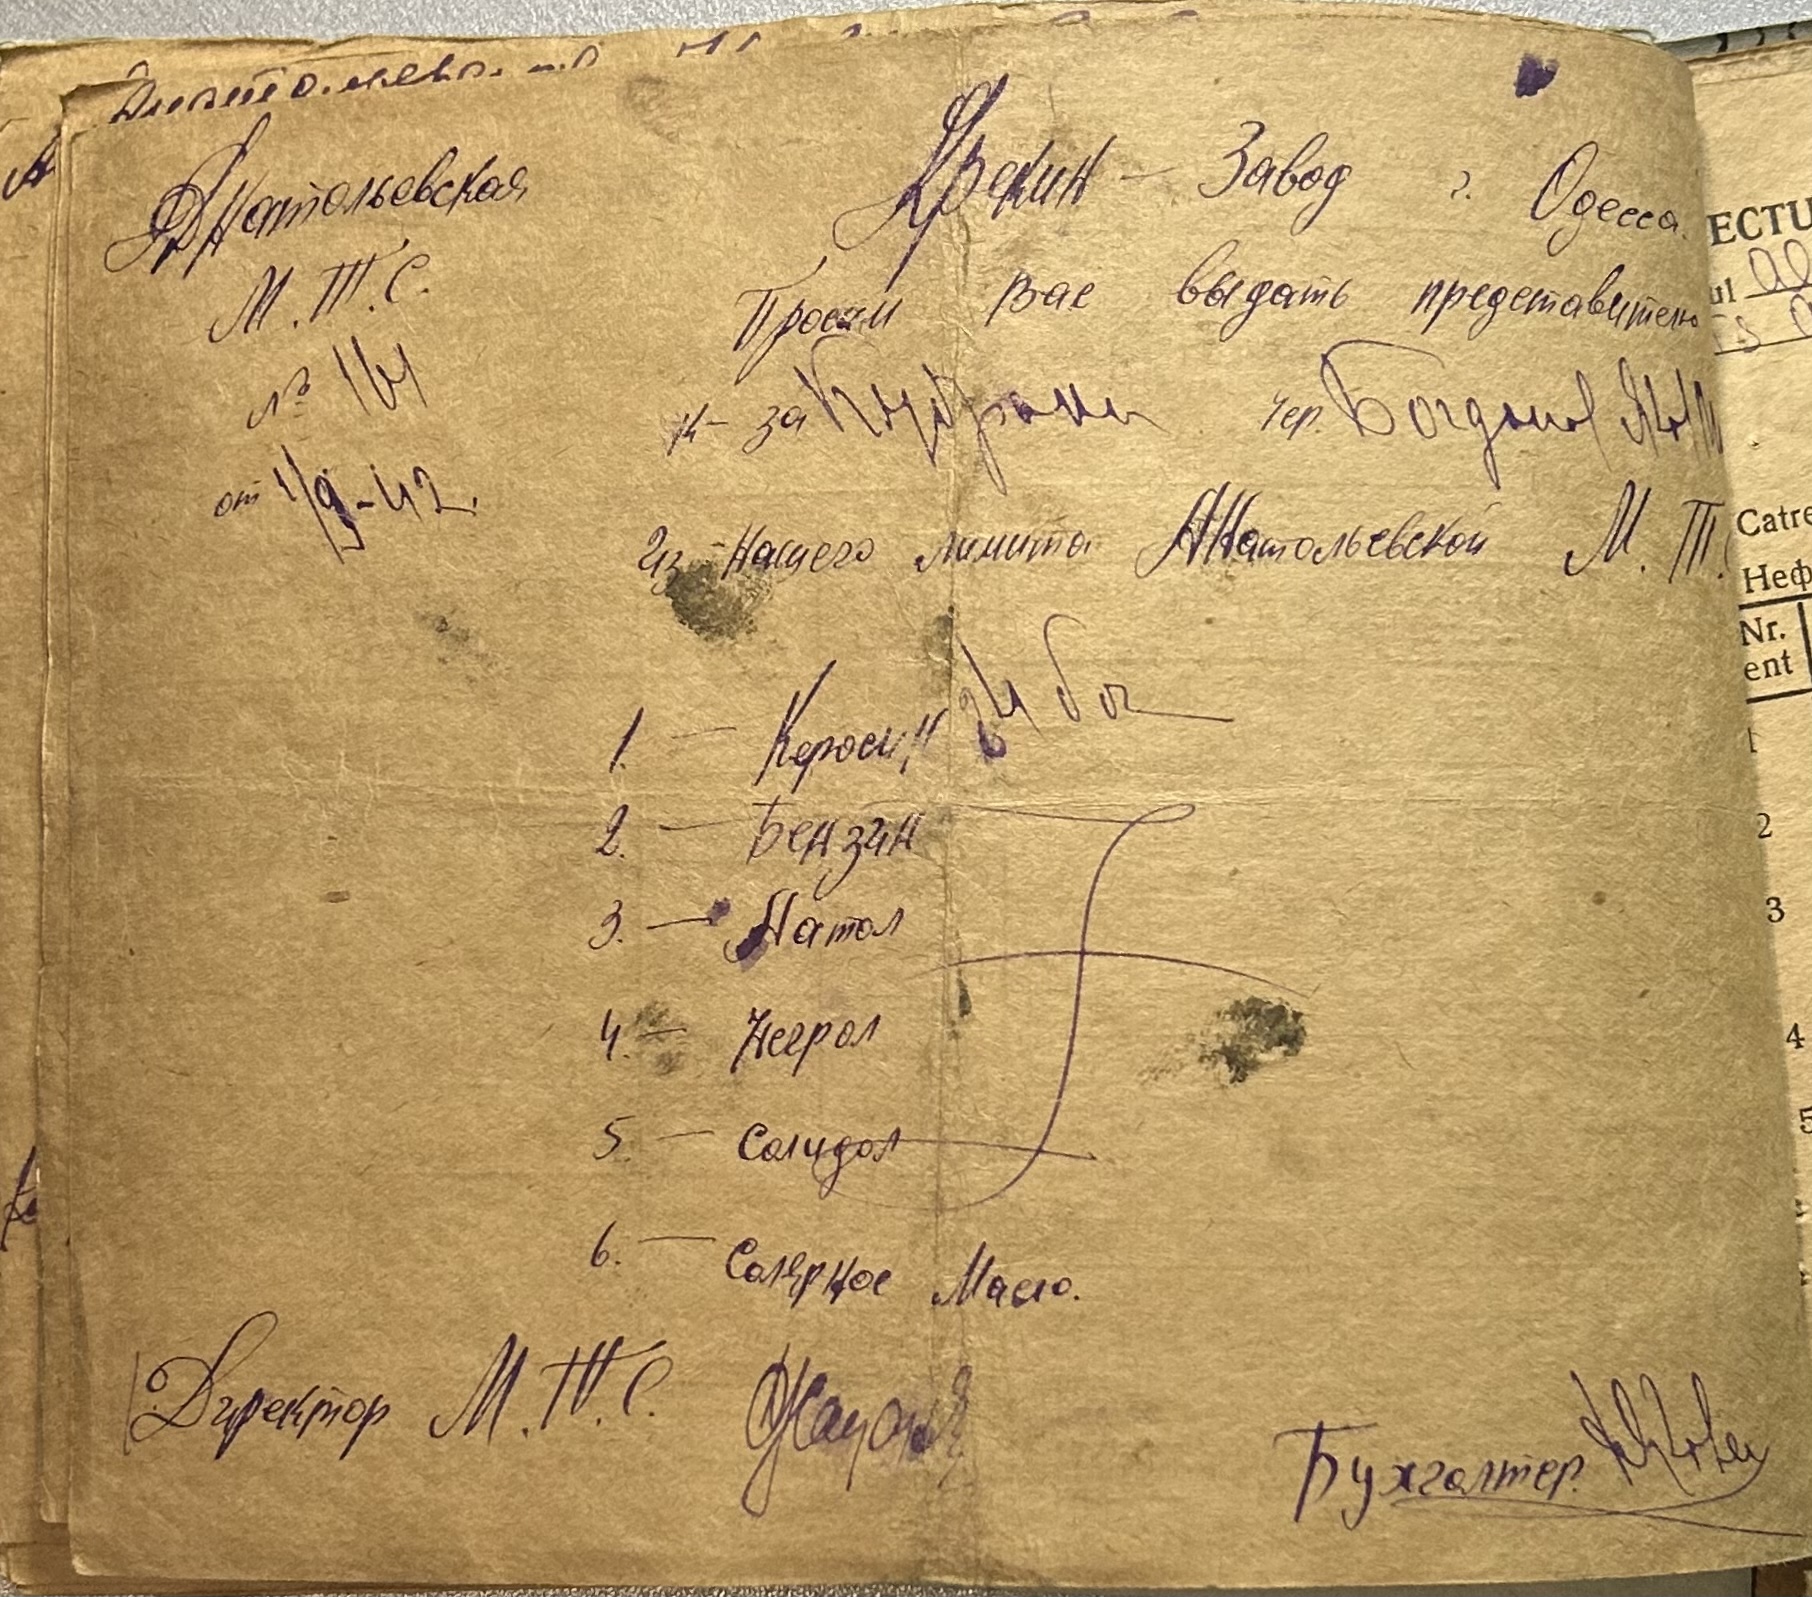 Анатольевская
М.Т.С.
№ 161
от 1/9-42.
Крекин-Завод г. Одесса.
Просим Вас выдать представителю
к-за Чер. Богданов
из Нашего лимита Анатольевской М.Т.
1. — Керосин 34 боч
2. — Бензин
3. — Натол
4. — Негрол
5. — Солидол
6. — Солярное Масло.
Директор М.Т.С.
Бухгалтер.
ECTU
ul
Catre
Неф
Nr.
ent
1
2
3
4
5